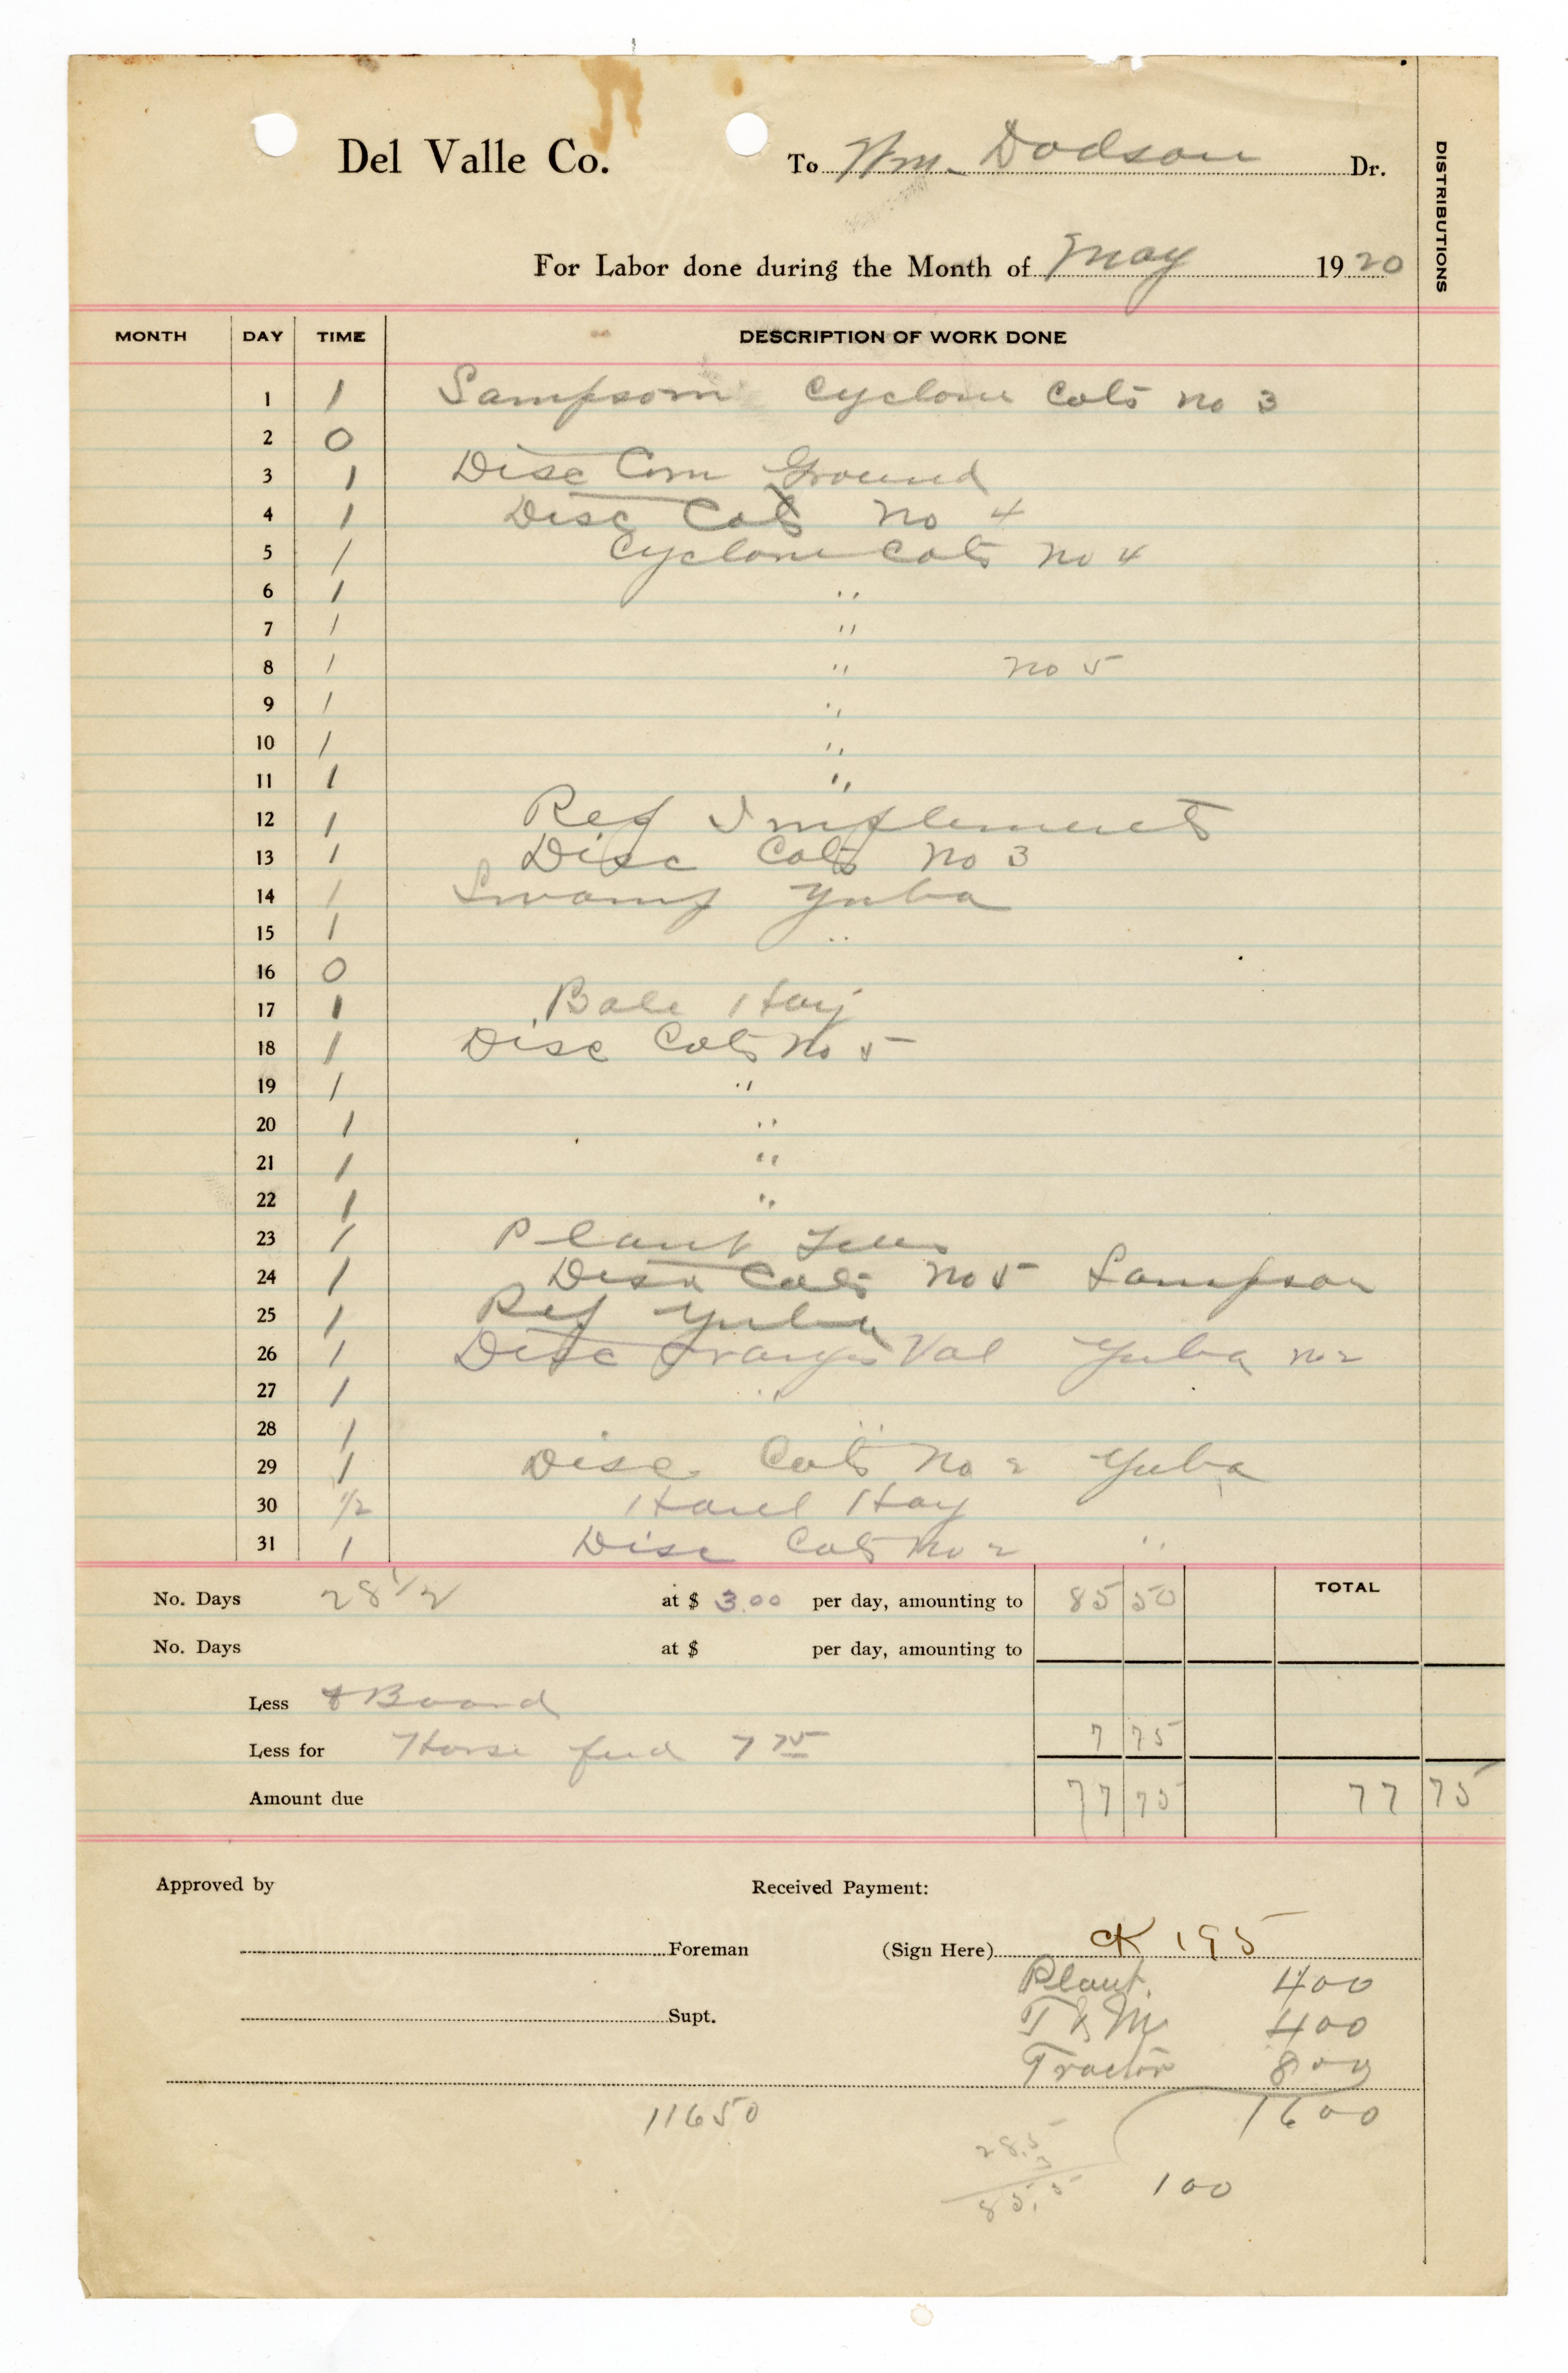 Del Valle Co. To Wm. Dodson Dr.
DISTRIBUTIONS
For Labor done during the Month of May 1920
MONTH DAY TIME DESCRIPTION OF WORK DONE
1 1 Sampson Cyclone Cots no 3
2 0
3 1 Disc Corn Ground
4 1 Disc Cots No 4
5 1 Cyclone Cots No 4
6 1 "
7 1 "
8 1 " no 5
9 1 "
10 1 "
11 1 "
12 1 Rep Implements
13 1 Disc Cots No 3
14 1 Swamp Yuba
15 1 "
16 0
17 1 Bale Hay
18 1 Disc Cots No 5
19 1 "
20 1 "
21 1 "
22 1 "
23 1 Plant
24 1 Disc Cots No 5 Sampson
25 1 Rep Yuba
26 1 Disc Oranges Val Yuba no 2
27 1 "
28 1 "
29 1 Disc Cots No 2 Yuba
30 1/2 Haul Hay
31 1 Disc Cots No 2 "
No. Days 28 1/2 at $ 3.00 per day, amounting to 85 50 TOTAL
No. Days at $ per day, amounting to
Less Board
Less for Horse feed 7 75 7 75
Amount due 77 75 77 75
Approved by Received Payment:
Foreman (Sign Here) CK 195
Plant. 400
Supt. T & M 400
Tractor 800
11650 1600
28.5
3
85.5 100